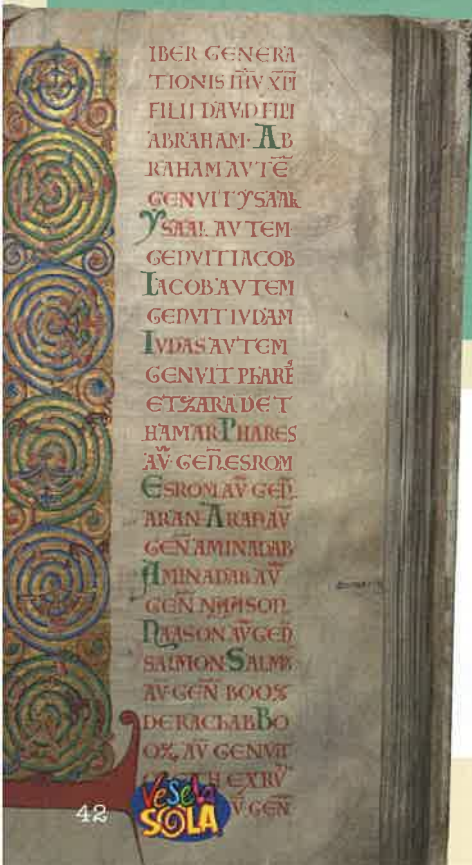 IBER GENERA
TIONIS IHV XPI
FILII DAVID FILII
ABRAHAM· AB
RAHAM AVTE
GENVIT YSAAK
YSAAC AVTEM
GENVIT IACOB
IACOB AVTEM
GENVIT IVDAM
IVDAS AVTEM
GENVIT PHARE
ET ZARA DE T
HAMAR PHARES
AV GEN ESROM
ESROM AV GEN
ARAN ARAN AV
GEN AMINADAB
AMINADAB AV
GEN NAASON
NAASON AV GEN
SALMON SALMŌ
AV GEN BOOZ
DE RACHAB BO
OZ AV GENVIT
EX RV
V GEN
VeSeLa
ŠOLA
42